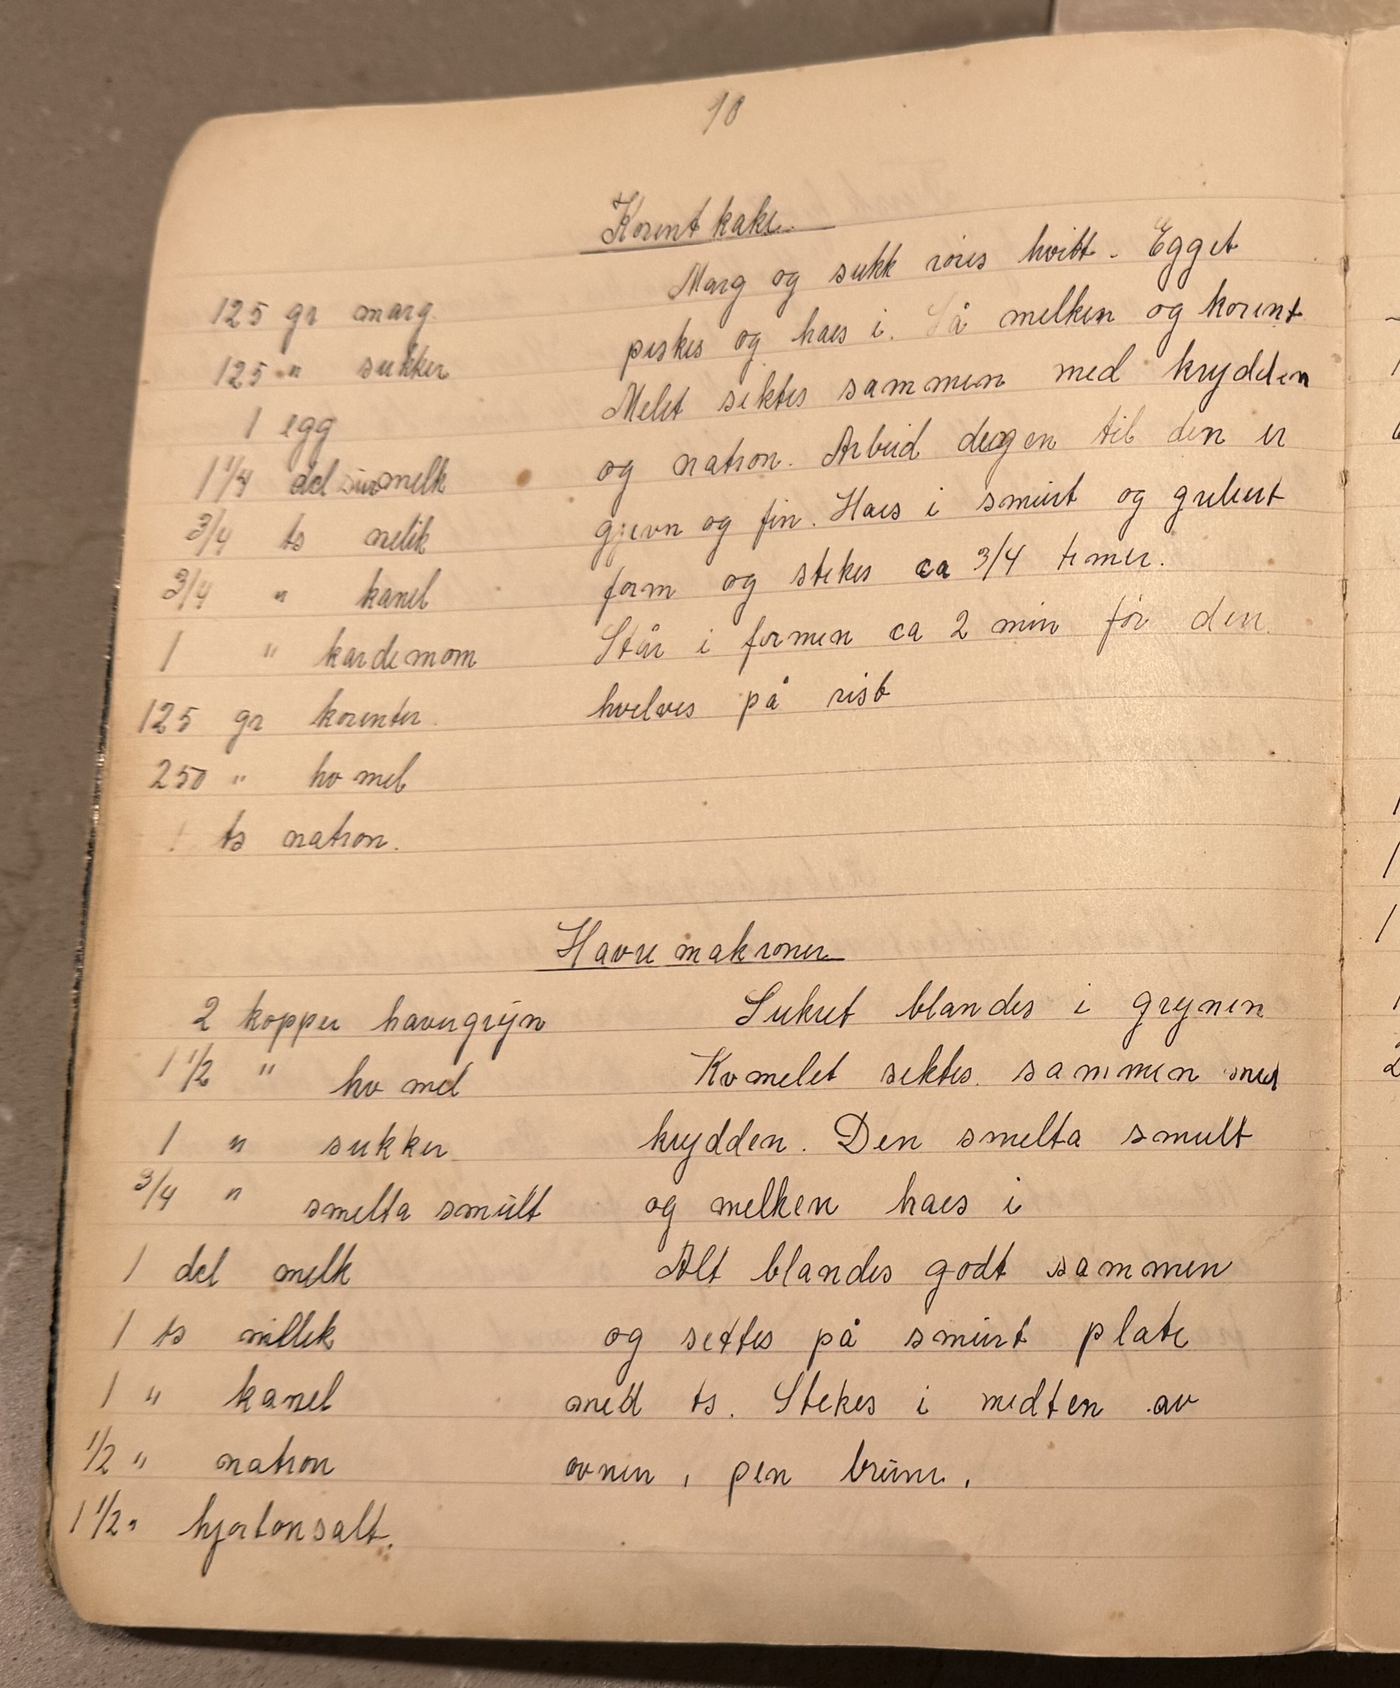 10
Korent kake
125 gr marg.
125 " sukker
1 egg
1 1/4 del surmelk
3/4 ts nelik
3/4 " kanel
1 " kardemom
125 gr korenter.
250 " hv mel
1 ts natron.
Marg og sukk røres hvitt. Egget
piskes og haes i. Så melken og korent
Melet siktes sammen med krydden
og natron. Arbeid deigen til den er
gjevn og fin. Haes i smurt og griljert
form og stekes ca 3/4 timer.
Står i formen ca 2 min før den
hvelves på rist
Havre makroner
2 kopper havregryn
1 1/2 " hv mel
1 " sukker
3/4 " smelta smult
1 del melk
1 ts nellik
1 " kanel
1/2 " natron
1 1/2 " hjortonsalt.
Sukret blandes i grynen
Kvmelet siktes sammen med
krydden. Den smelta smult
og melken haes i
Alt blandes godt sammen
og settes på smurt plate
med ts. Stekes i midten av
ovnen, pen brune.